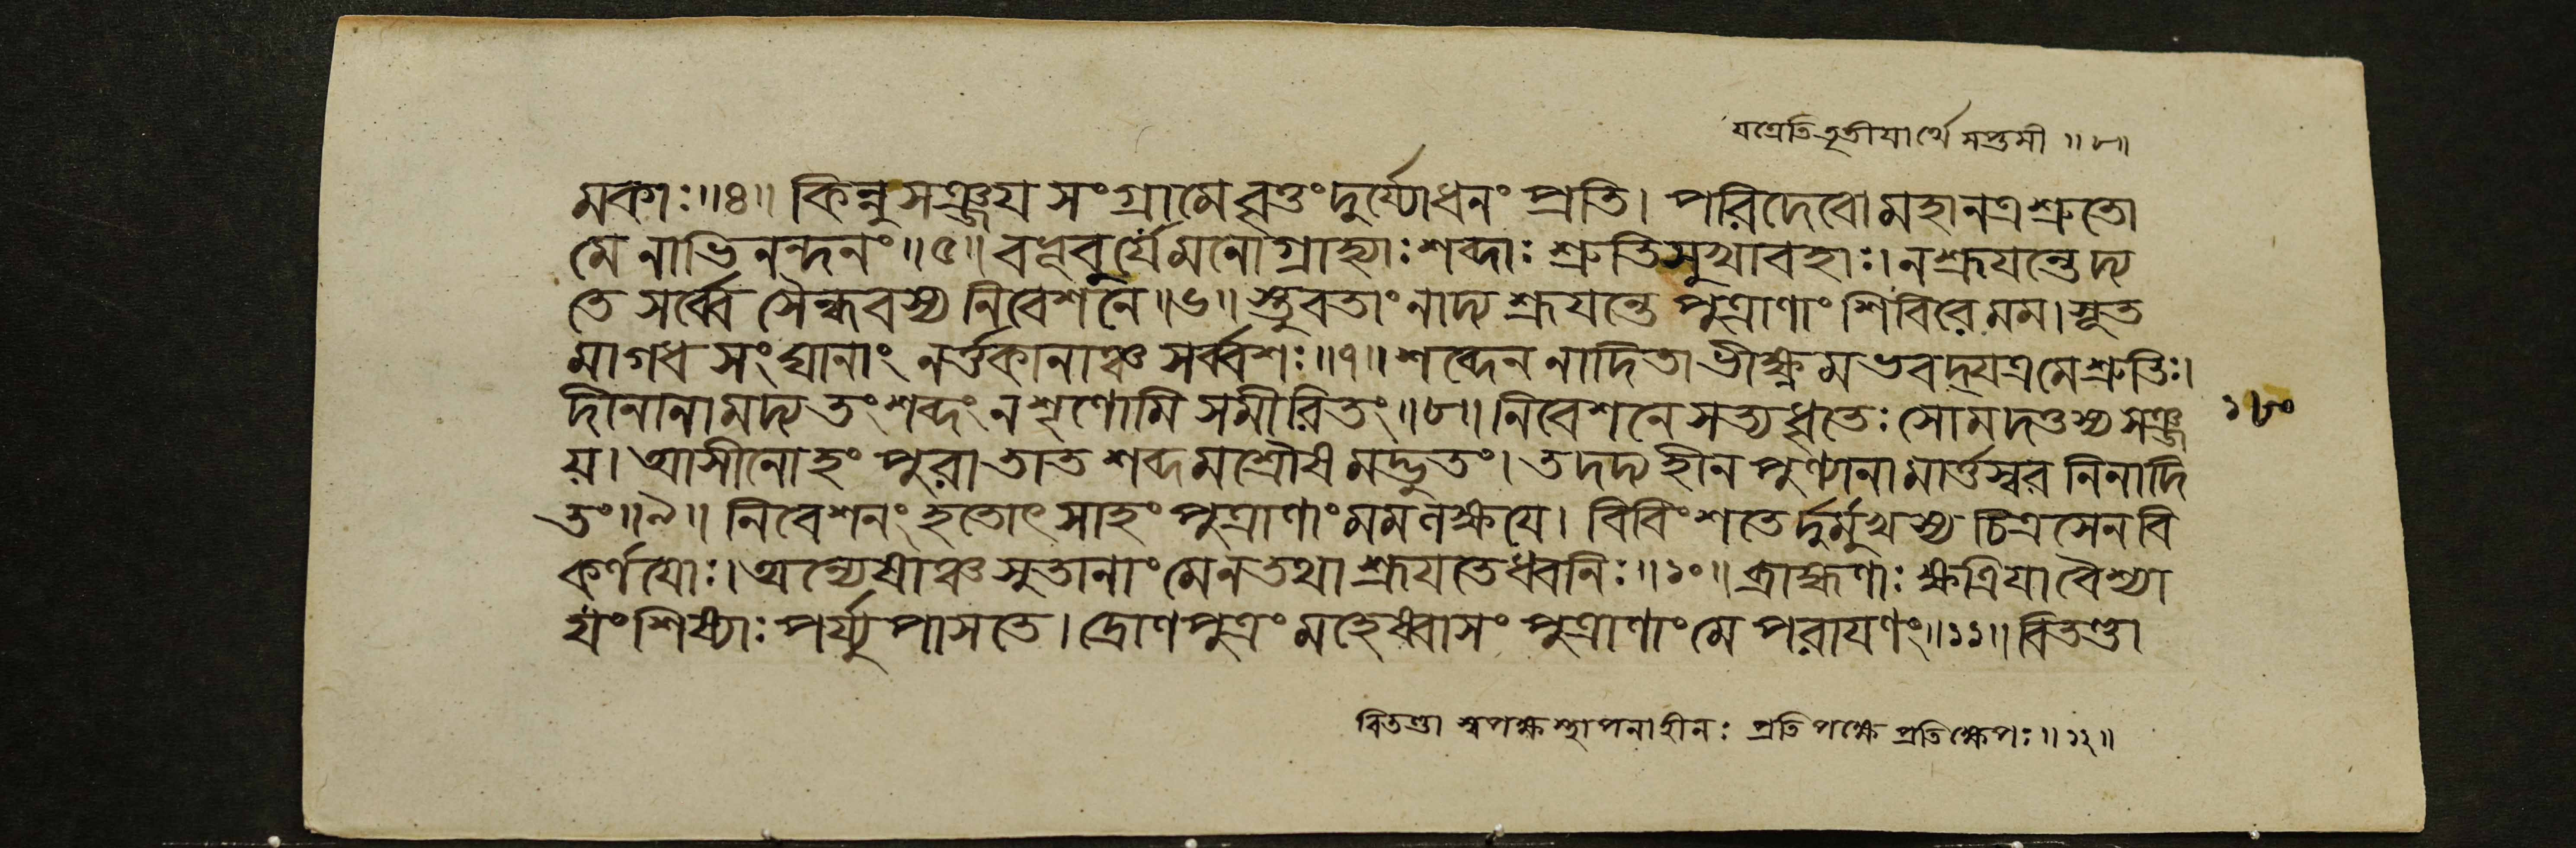 যত্রেতি তৃতীয়ার্থে সপ্তমী ॥ ৮॥
মকাঃ॥৪॥ কিন্নু সঞ্জয় সংগ্রামে বৃত্তং দুর্য্যোধনং প্রতি। পরিদেবো মহানত্র শ্রুতো
মে নাভিনন্দনং॥৫॥ বভূবুর্যে মনোগ্রাহ্যাঃ শব্দাঃ শ্রুতিসুখাবহাঃ। ন শ্রূয়ন্তেদ্য
তে সর্ব্বে সৈন্ধবস্য নিবেশনে॥৬॥ স্তুবতাং নাদ্য শ্রূয়ন্তে পুত্রাণাং শিবিরে মম। সূত
মাগধ সংঘানাং নর্ত্তকানাঞ্চ সর্ব্বশঃ॥৭॥ শব্দেন নাদিতাভীক্ষ্ণমভবদ্যত্র মে শ্রুতিঃ।
দীনানামদ্য তং শব্দং ন শৃণোমি সমীরিতং॥৮॥ নিবেশনে সত্যধৃতেঃ সোমদত্তস্য সঞ্জ
১৮০
য়। আসীনোহং পুরা তাত শব্দমশ্রৌষমদ্ভুতং। তদদ্য হীনপুণ্যানামার্ত্তস্বরনিনাদি
তং॥৯॥ নিবেশনং হতোৎসাহং পুত্রাণাং মম লক্ষয়ে। বিবিংশতের্দুর্মুখস্য চিত্রসেনবি
কর্ণয়োঃ। অন্যেষাঞ্চ সুতানাং মে ন তথা শ্রূয়তে ধ্বনিঃ॥১০॥ ব্রাহ্মণাঃ ক্ষত্রিয়া বৈশ্যা
যং শিষ্যাঃ পর্য্যুপাসতে। দ্রোণপুত্রং মহেষ্বাসং পুত্রাণাং মে পরায়ণং॥১১॥ বিতণ্ডা
বিতণ্ডা স্বপক্ষস্থাপনাহীনঃ প্রতিপক্ষে প্রতিক্ষেপঃ॥১২॥